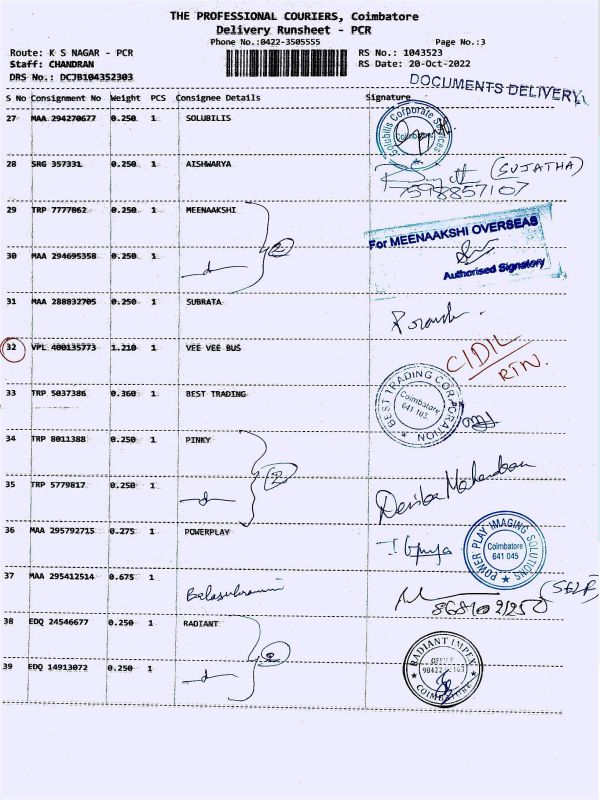 THE PROFESSIONAL COURIERS, Coimbatore
Delivery Runsheet - PCR
Phone No.:0422-3505555 Page No.:3
Route: K S NAGAR - PCR RS No.: 1043523
Staff: CHANDRAN RS Date: 20-Oct-2022
DRS No.: DCJB104352303 DOCUMENTS DELIVERY
S No Consignment No Weight PCS Consignee Details Signature
27 MAA 294270677 0.250 1 SOLUBILIS Solubilis Corporate Services Coimbatore
28 SRG 357331 0.250 1 AISHWARYA (SUJATHA)
7598857107
29 TRP 7777862 0.250 1 MEENAAKSHI For MEENAAKSHI OVERSEAS
2
30 MAA 294695358 0.250 1 Authorised Signatory
31 MAA 288832705 0.250 1 SUBRATA
32 VPL 400135773 1.210 1 VEE VEE BUS CIDIL
RTN.
33 TRP 5037386 0.360 1 BEST TRADING BEST TRADING CORPORATION Coimbatore 641 103.
34 TRP 8011388 0.250 1 PINKY
2
35 TRP 5779817 0.250 1
36 MAA 295792715 0.275 1 POWERPLAY POWER PLAY IMAGING SOLUTIONS Coimbatore 641 045
37 MAA 295412514 0.675 1 Balasubramani (SELF)
38 EDQ 24546677 0.250 1 RADIANT RADIANT IMPEX
2
39 EDQ 14913072 0.250 1 COIMBATORE